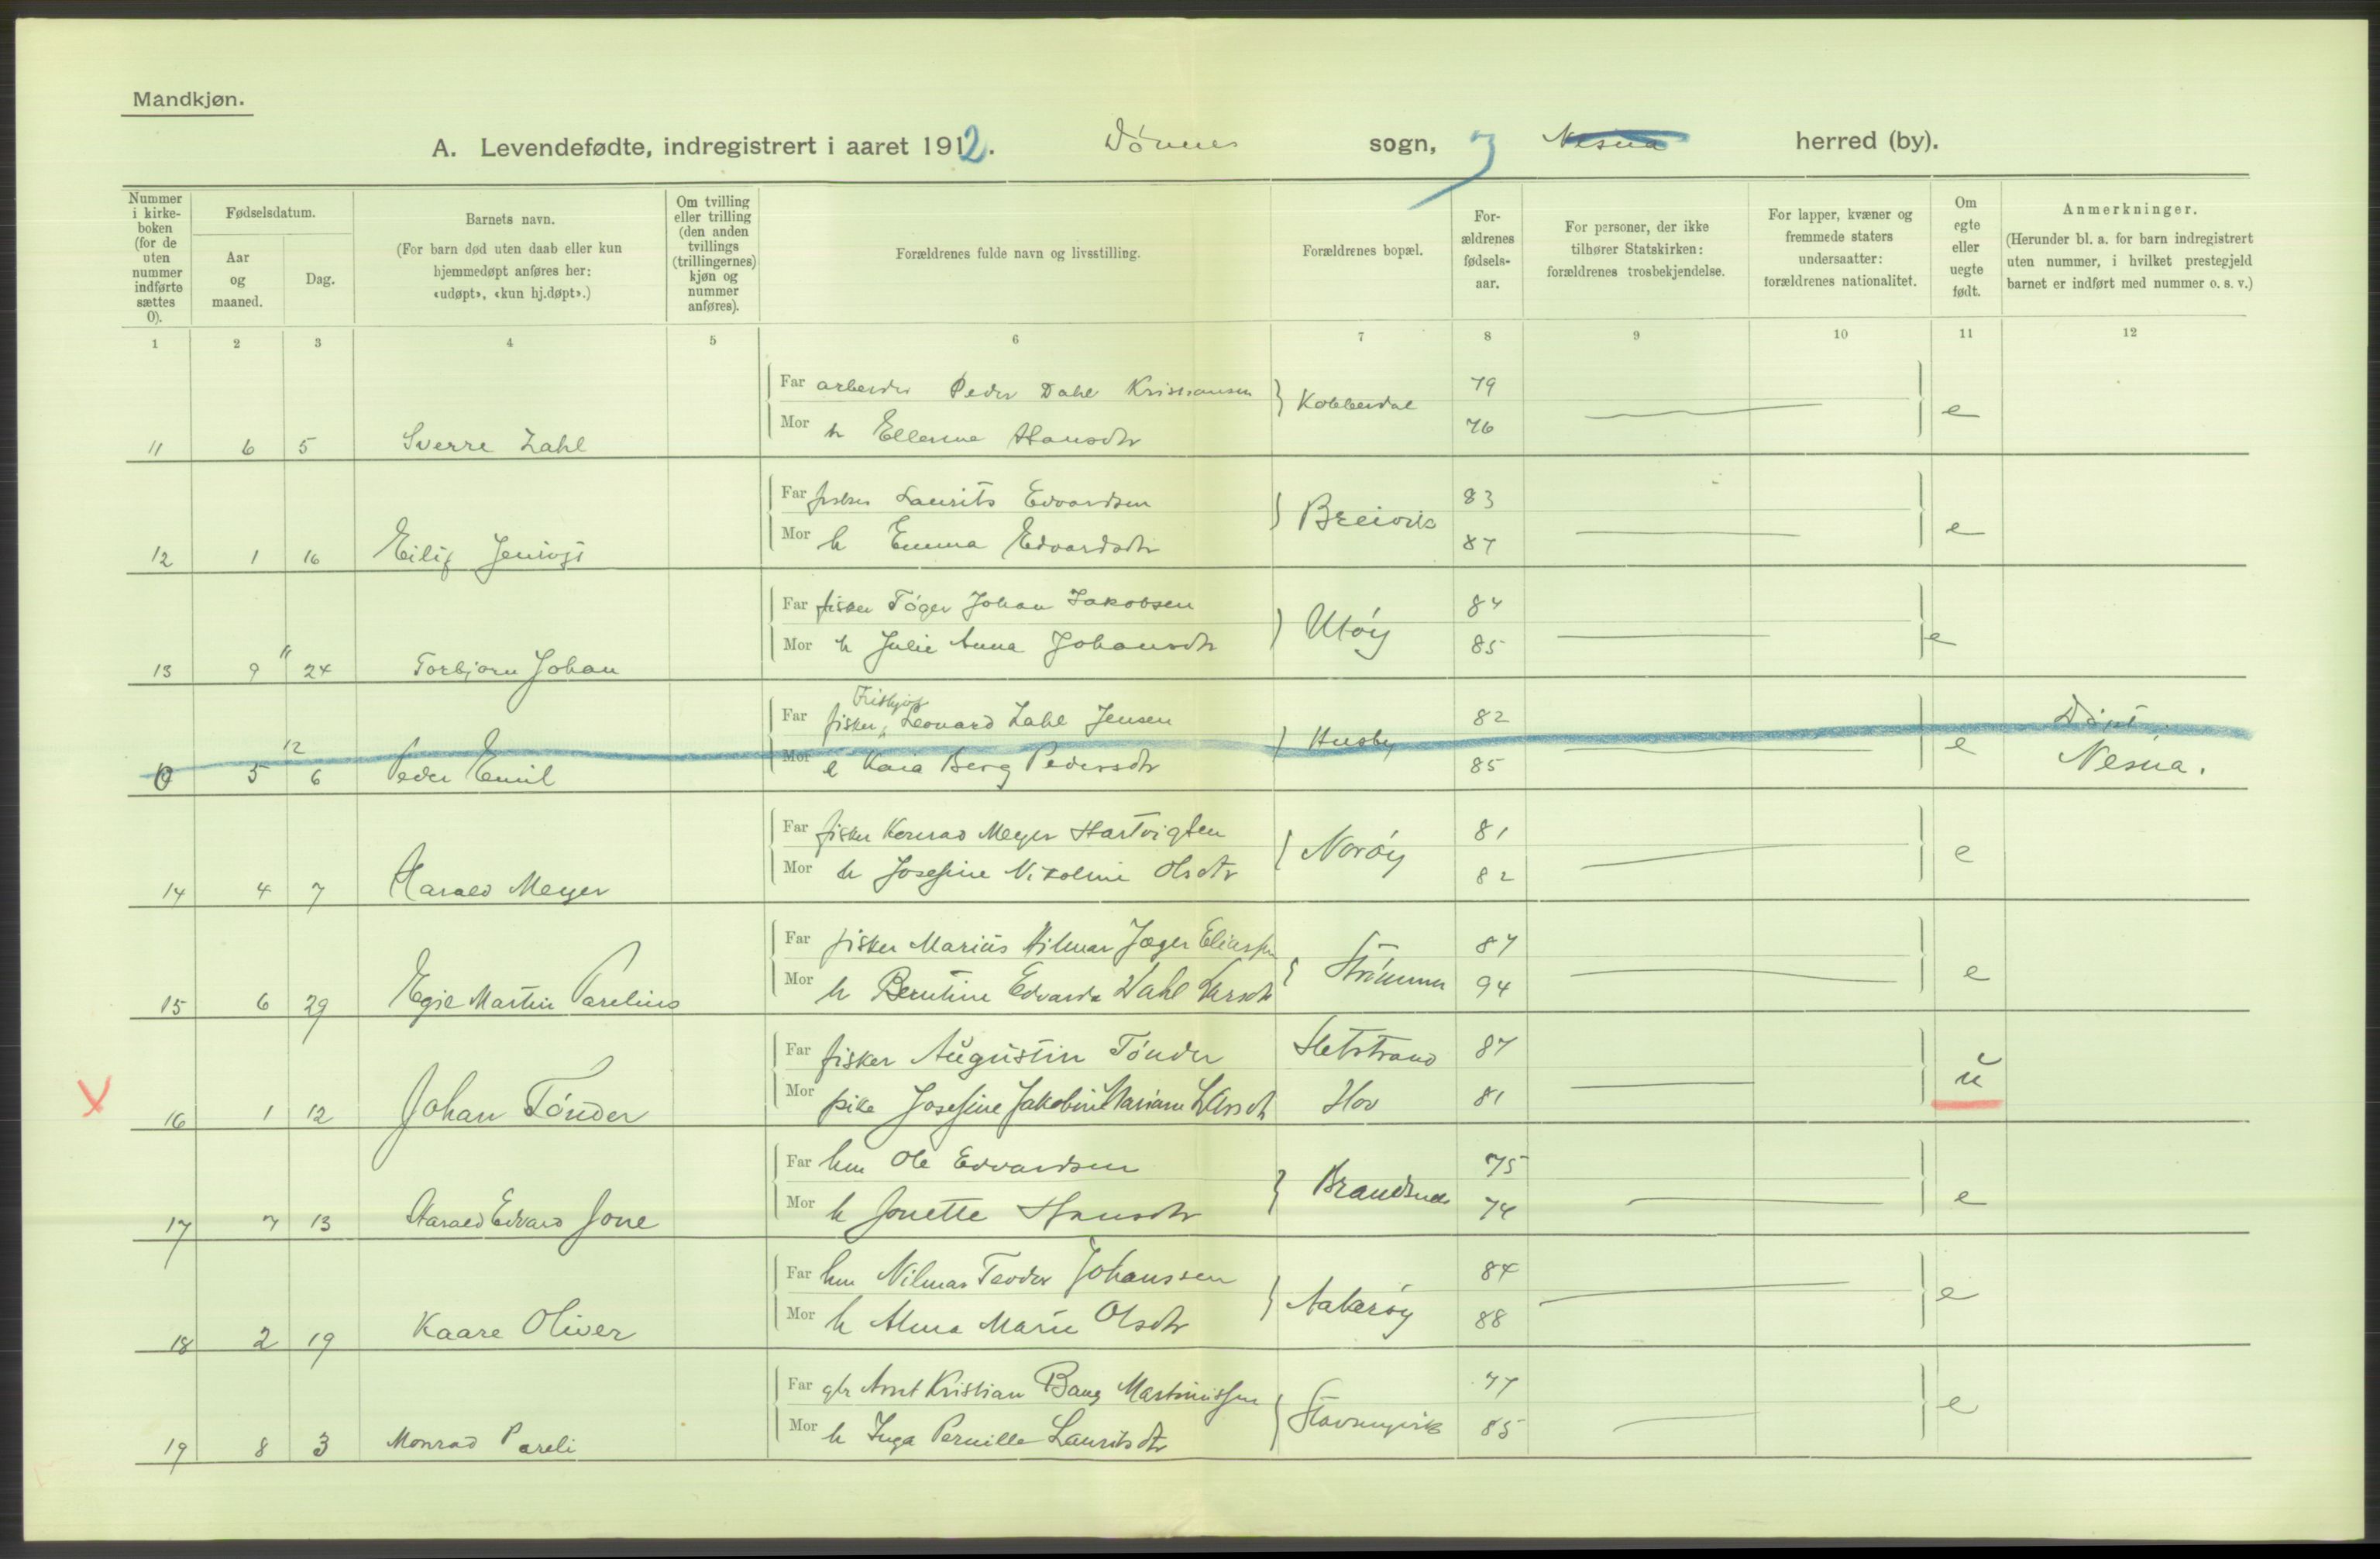 Mandkjøn.
A. Levendefødte, indregistrert i aaret 1912. Dønnes sogn, Nesna herred (by).
Nummer i kirke-boken (for de uten nummer indførte sættes 0).
Fødselsdatum.
Aar og maaned.
Dag.
Barnets navn.
(For barn død uten daab eller kun hjemmedøpt anføres her: «udøpt», «kun hj.døpt».)
Om tvilling eller trilling (den anden tvillings (trillingernes) kjøn og nummer anføres).
Forældrenes fulde navn og livsstilling.
Forældrenes bopæl.
For-ældrenes fødsels-aar.
For personer, der ikke tilhører Statskirken: forældrenes trosbekjendelse.
For lapper, kvæner og fremmede staters undersaatter: forældrenes nationalitet.
Om egte eller uegte født.
Anmerkninger.
(Herunder bl. a. for barn indregistrert uten nummer, i hvilket prestegjeld barnet er indført med nummer o. s. v.)
1 2 3 4 5 6 7 8 9 10 11 12
Far arbeider Peder Dahl Kristiansen Kobberdal 79
Mor h Ellerine Hansdtr 76 e
11 6 5 Sverre Zahl
Far fisker Laurits Edvardsen Breivik 83
Mor h Emma Edvardsdtr 87 e
12 1 16 Eilif
Far fisker Tøger Johan Jakobsen Utøy 84
Mor h Julie Anna Johansdtr 85 e
13 9 11 24 Torbjorn Johan
Fritjof
Far fisker, Leonard Zahl Jensen Husby 82 Døpt
Mor h Kaia Berg Pedersdtr 85 e Nesna.
0 5 12 6 Peder Emil
Far fisker Konrad Meyer Hartvigsen Norøy 81
Mor h Josefine Nikoline Olsdtr 82 e
14 4 7 Harald Meyer
Far fisker Marius Hilmar Jæger Eliassen Strømmen 87
Mor h Berntine Edvarda Dahl Larsdtr 94 e
15 6 29 Egil Martin Parelius
Far fisker Augustin Tønder Sletstrand 87
Mor pike Josefine Jakobine Mariane Larsdtr Hov 81 u
16 1 12 Johan Tønder
Far hm Ole Edvardsen 75
Mor h Jonette Hansdtr 74 e
17 7 13 Harald Edvard Jone
Far hm Hilmar Teodor Johanssen Aakerøy 84
Mor h Alma Marie Olsdtr 88 e
18 2 19 Kaare Oliver
Far gbr Arnt Kristian Bang Martinussen 77
Mor h Inga Pernille Lauritsdtr 85 e
19 8 3 Monrad Pareli